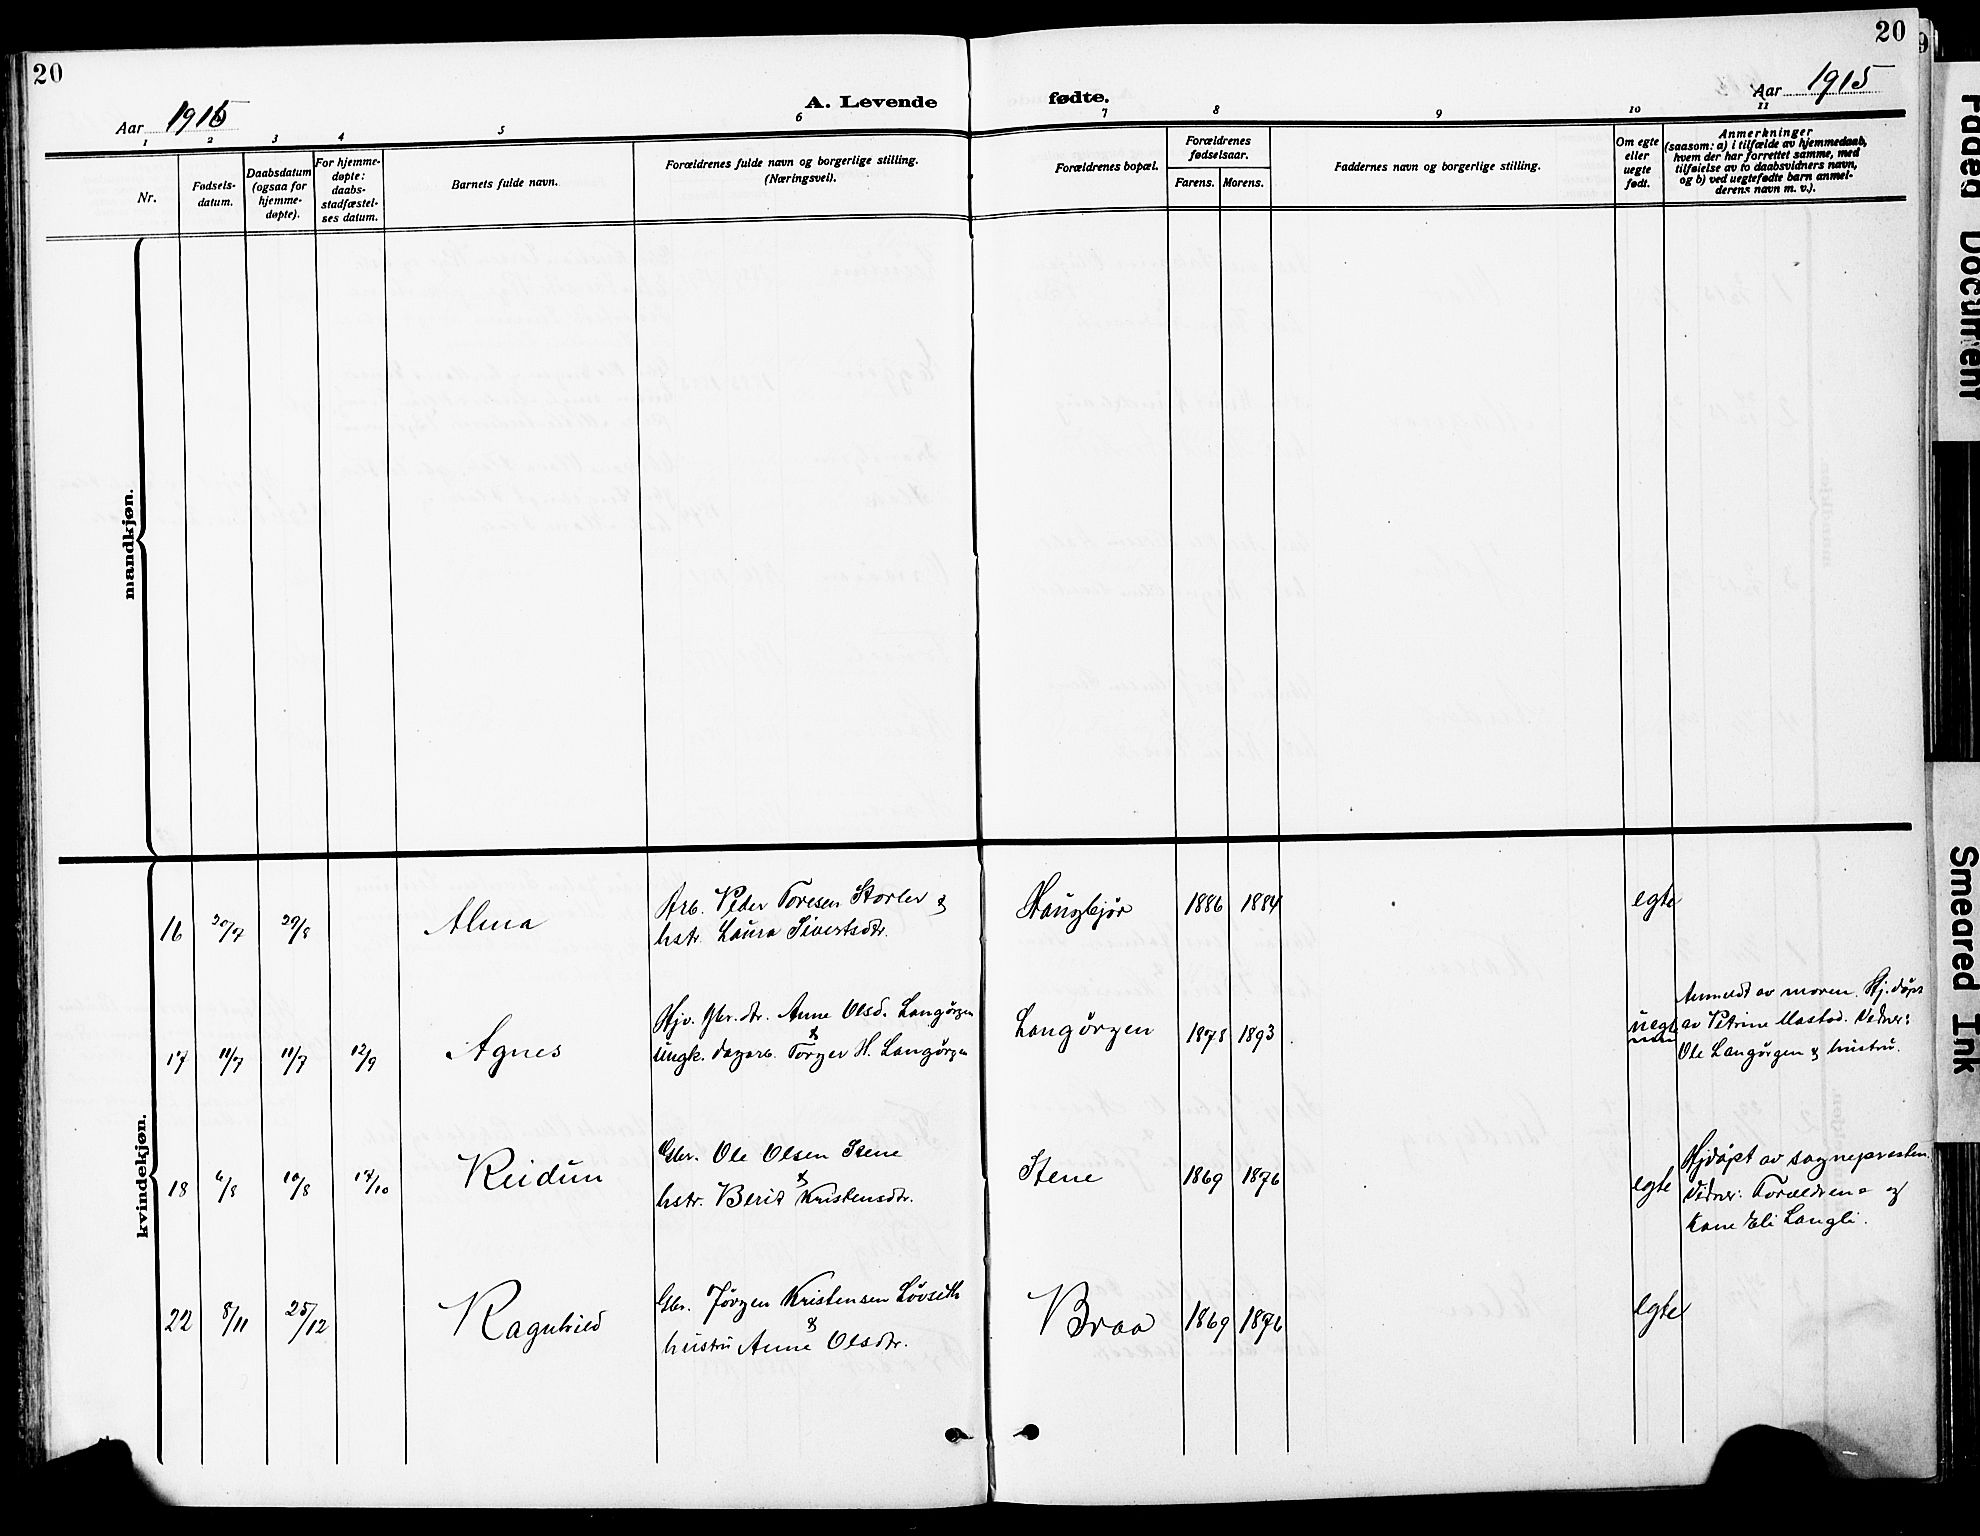 20
20
Aar 1915
A. Levende fødte.
Aar 1915
1 2 3 4 5 6 7 8 9 10 11
Nr.
Fødsels-
datum.
Daabsdatum
(ogsaa for
hjemme-
døpte).
For hjemme-
døpte:
daabs-
stadfæstel-
ses datum.
Barnets fulde navn.
Forældrenes fulde navn og borgerlige stilling.
(Næringsvei).
Forældrenes bopæl.
Forældrenes
fødselsaar.
Farens. Morens.
Faddernes navn og borgerlige stilling.
Om egte
eller
uegte
født.
Anmerkninger
(saasom: a) i tilfælde av hjemmedaab,
hvem der har forrettet samme, med
tilføielse av to daabsvidners navn,
og b) ved uegtefødte barn anmel-
derens navn m. v.).
mandkjøn.
kvindekjøn.
16 20/7 29/8 Alma
Arb. Peder Toresen Storler &
hstr. Laura Sivertsdtr.
Haugbjør 1886 1884 egte
17 11/7 11/7 12/9 Agnes
Hjv. Gbr.dtr. Anne Olsd. Langørgen
&
Ungk. dagarb. Torger H. Langørgen
Langørgen 1878 1893 uegte
Anmeldt av moren. Hj.døpt
av Petrine Mastad. Vidner:
Ole Langørgen & hustru.
18 6/8 10/8 17/10 Reidun
Gbr. Ole Olsen Stene
&
hstr. Berit Kristensdtr.
Stene 1869 1876 egte
Hjdøpt av sognepresten.
Vidner: Forældrene og
Kone Eli Langli.
22 8/11 25/12 Ragnhild
Gbr. Jørgen Kristensen Løvseth
&
hustru Anne Olsdtr.
Braa 1869 1876 egte
Faded Document
Smeared Ink